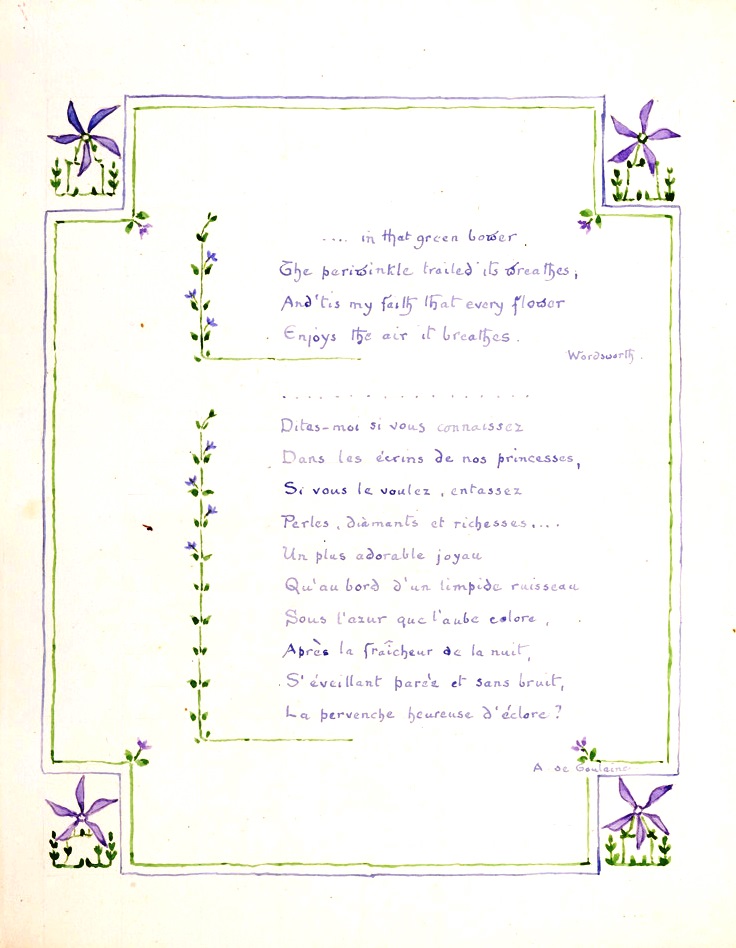 .... in that green bower
The periwinkle trailed its wreathes,
And 'tis my faith that every flower
Enjoys the air it breathes.
Wordsworth.
. . . . . . . . . . . . . . . .
Dites-moi si vous connaissez
Dans les écrins de nos princesses,
Si vous le voulez, entassez
Perles, diamants et richesses....
Un plus adorable joyau
Qu'au bord d'un limpide ruisseau
Sous l'azur que l'aube colore,
Après la fraîcheur de la nuit,
S'éveillant parée et sans bruit,
La pervenche heureuse d'éclore?
A de Goulaine